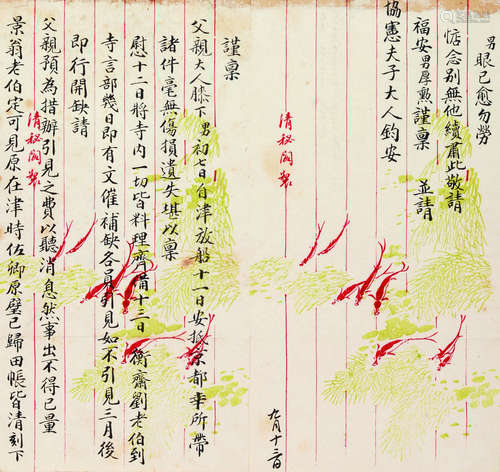 謹稟
父親大人膝下男初七日自津放船十一日安抵京都幸所帶
諸件毫無傷損遺失堪以稟
慰十二日將寺內一切皆料理齊備十三日衡齋劉老伯到
寺言部幾日即有文催補缺各員引見如不引見三月後
即行開缺請
父親預為措辦引見之費以聽消息然事出不得已量
景翁老伯定可見原在津時佐卿原璧已歸田帳皆清刻下
清秘閣製
男眼已愈勿勞
惦念別無他續肅此敬請
福安男厚勳謹稟 並請
協憲夫子大人鈞安
清秘閣製
九月十三日